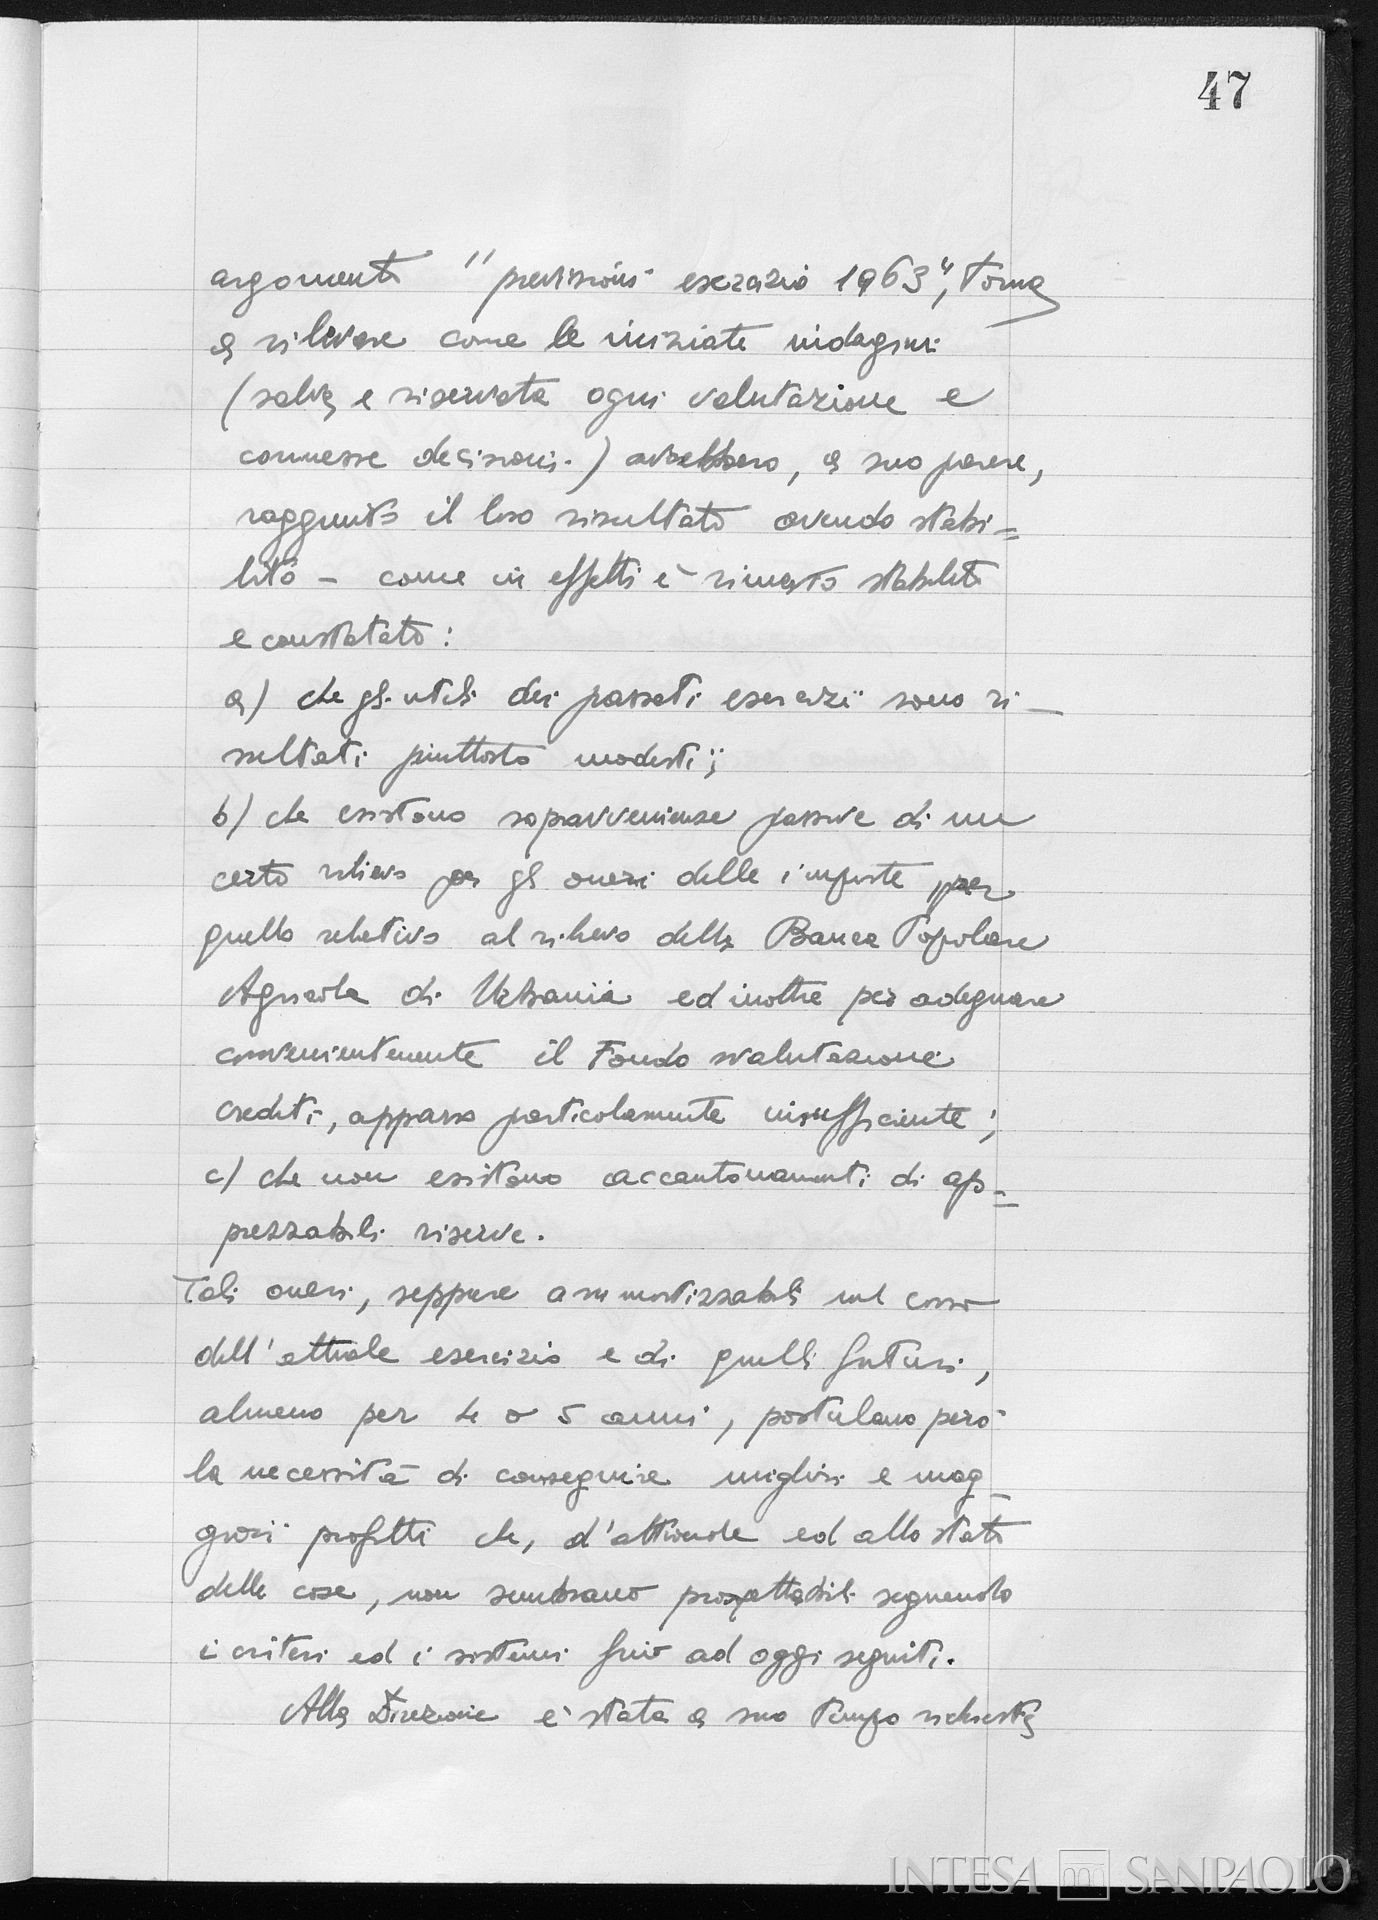 47
argomento "previsioni esercizio 1963", torna
a rilevare come le iniziate indagini
(salva e riservata ogni valutazione e
connesse decisioni) avrebbero, a suo parere,
raggiunto il loro risultato avendo stabi=
lito – come in effetti è rimasto stabilito
e constatato:
a) che gli utili dei passati esercizi sono ri–
sultati piuttosto modesti;
b) che esistono sopravvenienze passive di un
certo rilievo per gli oneri delle imposte, per
quello relativo al rilievo della Banca Popolare
Agricola di Urbania ed inoltre per adeguare
convenientemente il Fondo svalutazione
crediti, apparso particolarmente insufficiente;
c) che non esistono accantonamenti di ap=
prezzabili riserve.
Tali oneri, seppure ammortizzabili nel corso
dell'attuale esercizio e di quelli futuri,
almeno per 4 o 5 anni, postulano però
la necessità di conseguire migliori e mag
giori profitti che, d'altronde ed allo stato
delle cose, non sembrano prospettabili seguendo
i criteri ed i sistemi fino ad oggi seguiti.
Alla Direzione è stata a suo tempo richiesta
INTESA SANPAOLO